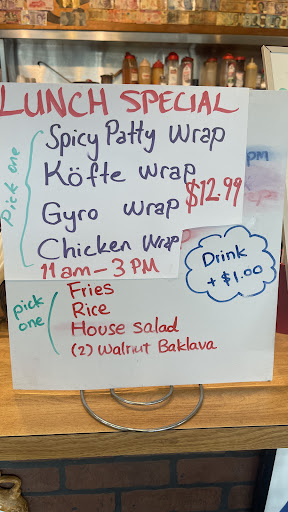 LUNCH SPECIAL
Pick one
Spicy Patty Wrap
Köfte wrap
$12.99
Gyro wrap
Chicken Wrap
11 am - 3 PM
PM
Drink
+ $1.00
pick
one
Fries
Rice
House salad
(2) Walnut Baklava